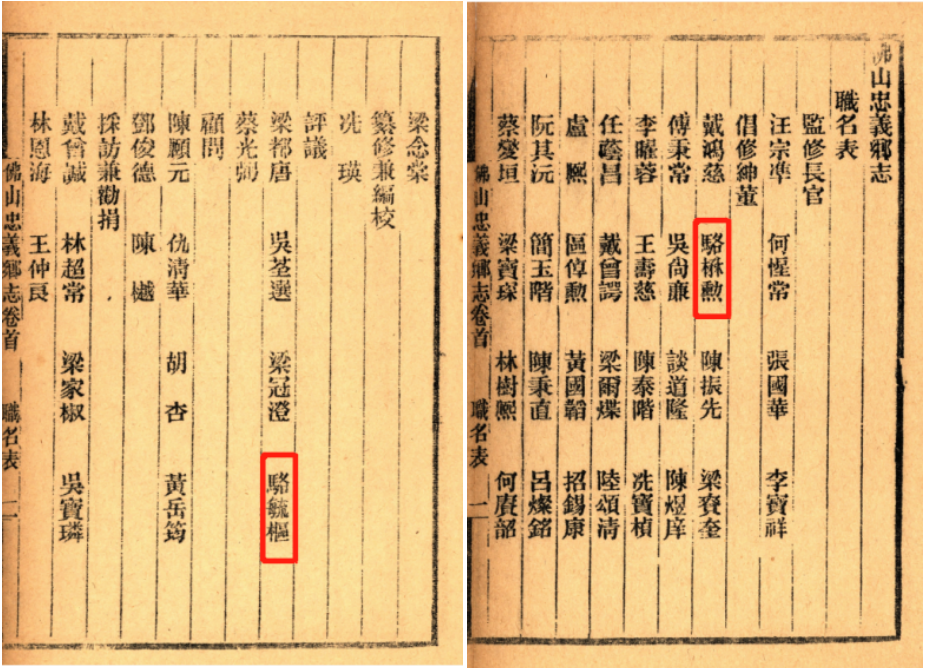 佛山忠義鄉志
職名表
監修長官
汪宗準 何惺常 張國華 李寶祥
倡修紳董
戴鴻慈 駱楙勳 陳振先 梁賚奎
傅秉常 吳尙廉 談道隆 陳煜庠
李曜蓉 王壽慈 陳泰階 冼寶楨
戴曾諤 陸頌清
盧熙 區倬勳 黃國韜 招錫康
阮其沅 簡玉階 陳秉直 呂燦銘
蔡燮垣 梁寶琛 林樹熙 何賡韶
佛山忠義鄉志卷首 職名表 一
梁念棠
纂修兼編校
冼瑛
評議
梁都唐 吳荃選 梁冠澄 駱毓樞
蔡光弼
顧問
陳願元 仇清華 胡杏 黃岳筠
鄧俊德 陳樾
採訪兼勸捐
戴曾誠 林超常 梁家椒 吳寶璘
林恩海 王仲良
佛山忠義鄉志卷首 職名表 一